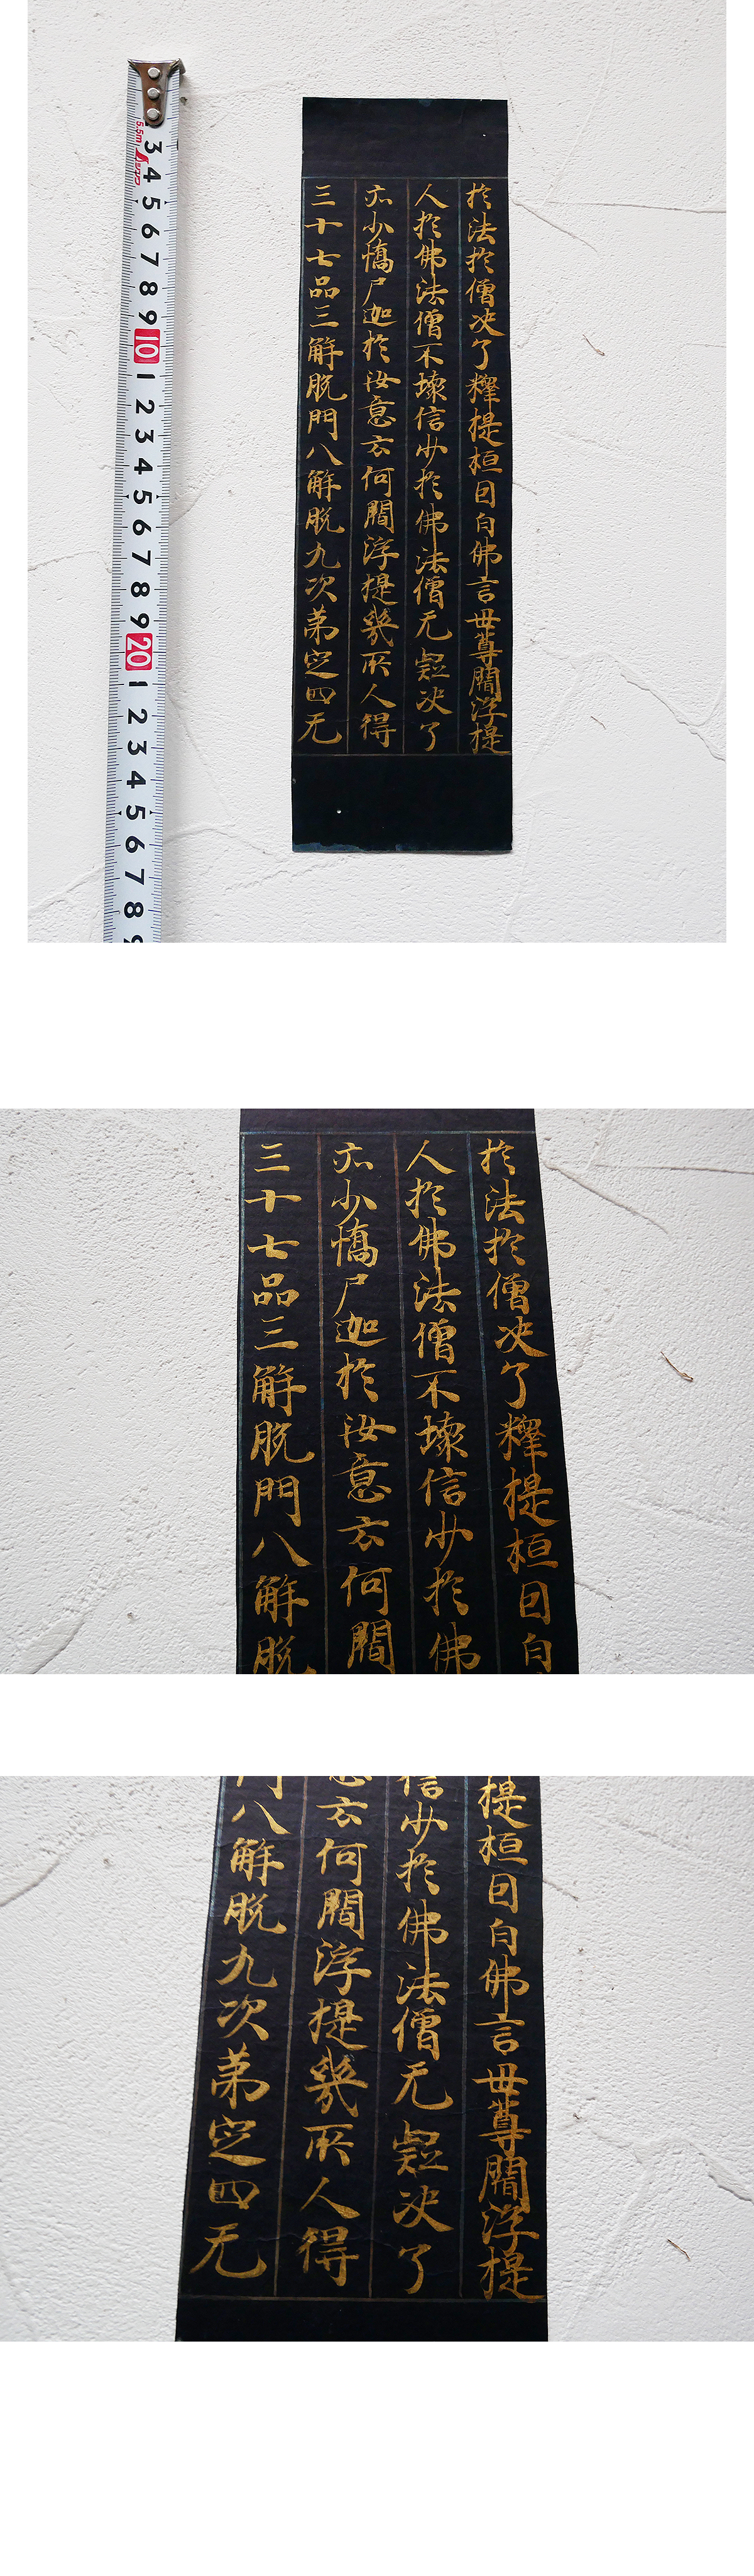 於法於僧决了釋提桓因白佛言世尊閻浮提
人於佛法僧不壞信少於佛法僧无疑决了
亦少憍尸迦於汝意云何閻浮提幾所人得
三十七品三解脫門八解脫九次第定四无
5.5m
3 4 5 6 7 8 9 10 1 2 3 4 5 6 7 8 9 20 1 2 3 4 5 6 7 8 9
三十七品三解脫門八解脫
亦少憍尸迦於汝意云何閻
人於佛法僧不壞信少於佛
於法於僧决了釋提桓因白
提桓因白佛言世尊閻浮提
信少於佛法僧无疑决了
意云何閻浮提幾所人得
門八解脫九次第定四无